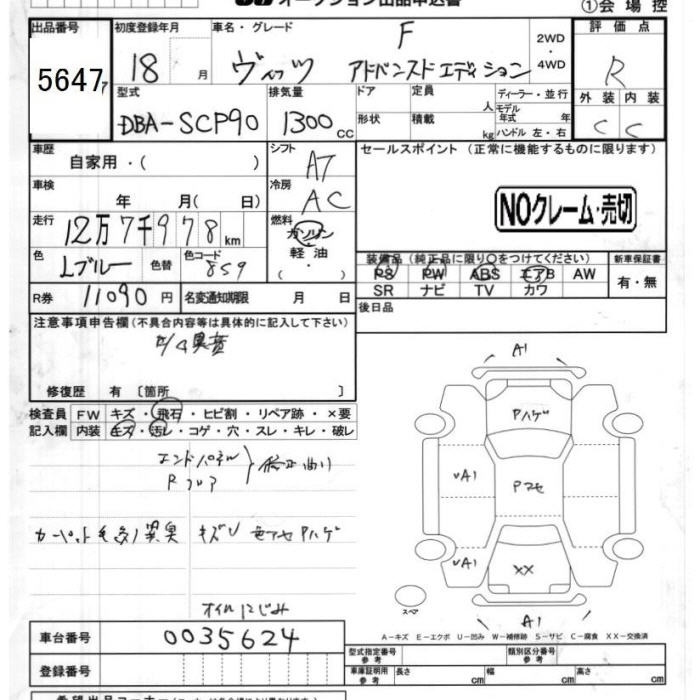 オークション出品申込書
①会場控
出品番号 初度登録年月 車名・グレード F 2WD・4WD 評価点
5647 18 月 ヴィッツ アドバンスドエディション R
型式 排気量 ドア 定員 人 ディーラー・並行 外装 内装
DBA-SCP90 1300cc 形状 積載 kg モデル年式 年 ハンドル 左・右 C C
車歴 シフト セールスポイント (正常に機能するものに限ります)
自家用・( ) AT
車検 冷房
年 月( 日) AC NOクレーム・売切
走行 燃料
12万7千978km ガソリン
色 色替 色コード 軽油 装備品 (純正品に限り○をつけてください) 新車保証書
Lブルー 859 ・( ) PS PW ABS エアB AW 有・無
R券 11090円 名変通知期限 月 日 SR ナビ TV カワ
後日品
注意事項申告欄 (不具合内容等は具体的に記入して下さい)
異音
修復歴 有 〔箇所 〕
検査員 FW キズ・飛石・ヒビ割・リペア跡・×要
記入欄 内装 キズ・汚レ・コゲ・穴・スレ・キレ・破レ
エンドパネル
Rフロア
修正曲り
異臭 キズU Pハゲ
オイルにじみ
A1
Pハゲ
UA1
Pマモ
UA1
XX
スペア
A1
A-キズ E-エクボ U-凹み W-補修跡 S-サビ C-腐食 XX-交換済
車台番号 0035624 型式指定番号 参考 類別区分番号 参考
登録番号 車庫証明用 参考 長さ cm 幅 cm 高さ cm